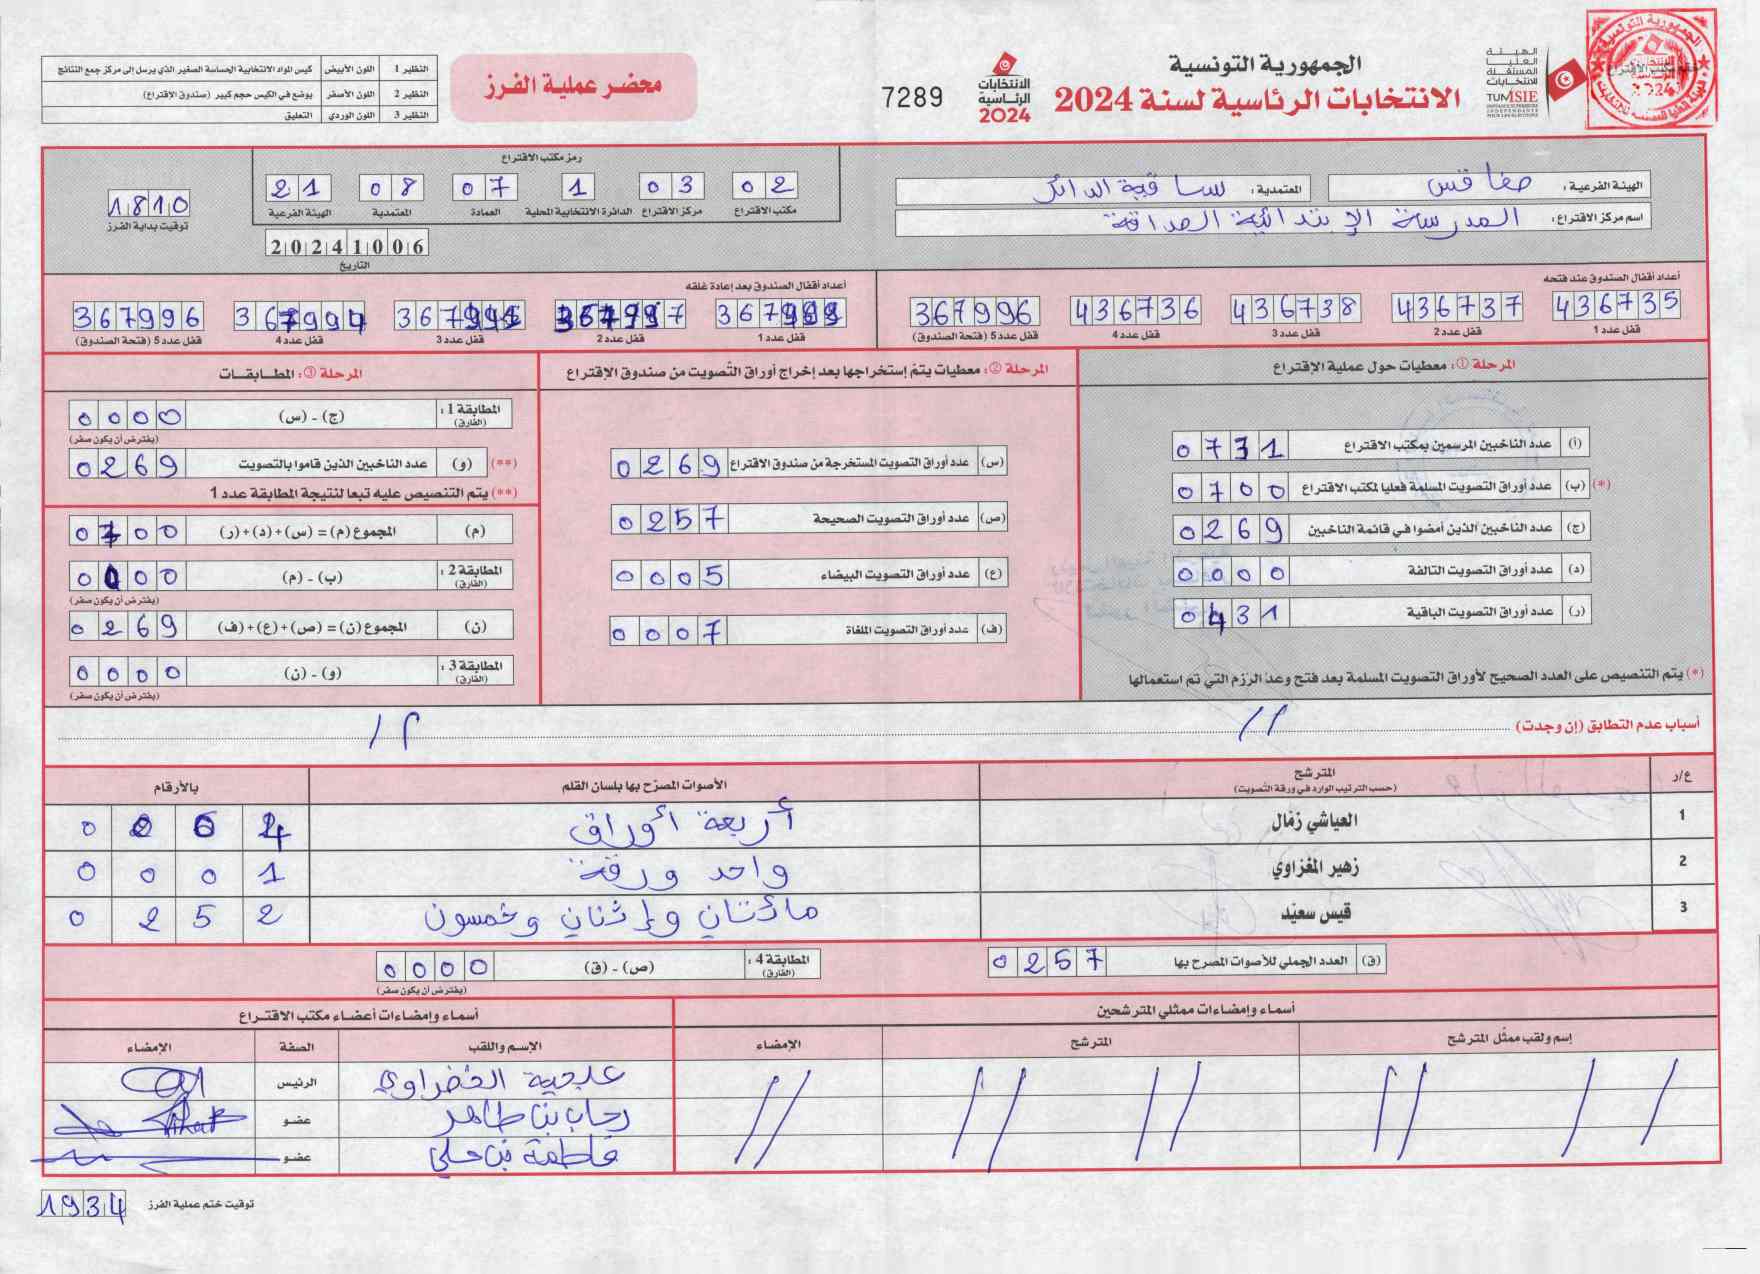 الجمهورية التونسية
الانتخابات الرئاسية لسنة 2024
الهيئة العليا المستقلة للانتخابات
TUNISIE
الانتخابات الرئاسية 2024
7289
محضر عملية الفرز
النظير 1 اللون الأبيض كيس المواد الانتخابية الحساسة الصغير الذي يرسل إلى مركز جمع النتائج
النظير 2 اللون الأصفر يوضع في الكيس حجم كبير (صندوق الاقتراع)
النظير 3 اللون الوردي التعليق
الهيئة الفرعية: صفاقس
المعتمدية: ساقية الدائر
اسم مركز الاقتراع: المدرسة الإبتدائية الصداقة
رمز مكتب الاقتراع
02 03 1 07 08 21
مكتب الاقتراع مركز الاقتراع الدائرة الانتخابية المحلية العمادة المعتمدية الهيئة الفرعية
20241006
التاريخ
1810
توقيت بداية الفرز
أعداد أقفال الصندوق عند فتحه
436735 436737 436738 436736 367996
قفل عدد 1 قفل عدد 2 قفل عدد 3 قفل عدد 4 قفل عدد 5 (فتحة الصندوق)
أعداد أقفال الصندوق بعد إعادة غلقه
367996
قفل عدد 1 قفل عدد 2 قفل عدد 3 قفل عدد 4 قفل عدد 5 (فتحة الصندوق)
المرحلة ①: معطيات حول عملية الإقتراع
(أ) عدد الناخبين المرسمين بمكتب الاقتراع 0731
(*) (ب) عدد أوراق التصويت المسلمة فعليا لمكتب الاقتراع 0700
(ج) عدد الناخبين الذين أمضوا في قائمة الناخبين 0269
(د) عدد أوراق التصويت التالفة 0000
(ر) عدد أوراق التصويت الباقية 0431
(*) يتم التنصيص على العدد الصحيح لأوراق التصويت المسلمة بعد فتح وعد الرزم التي تم استعمالها
المرحلة ②: معطيات يتم إستخراجها بعد إخراج أوراق التصويت من صندوق الإقتراع
(س) عدد أوراق التصويت المستخرجة من صندوق الاقتراع 0269
(ص) عدد أوراق التصويت الصحيحة 0257
(ع) عدد أوراق التصويت البيضاء 0005
(ف) عدد أوراق التصويت الملغاة 0007
المرحلة ③: المطابقات
المطابقة 1: (الفارق) (ج) - (س) 0000
(يفترض أن يكون صفر)
(**) (و) عدد الناخبين الذين قاموا بالتصويت 0269
(**) يتم التنصيص عليه تبعا لنتيجة المطابقة عدد 1
(م) المجموع (م) = (س)+(د)+(ر) 0700
المطابقة 2: (الفارق) (ب) - (م) 0000
(يفترض أن يكون صفر)
(ن) المجموع (ن) = (ص)+(ع)+(ف) 0269
المطابقة 3: (الفارق) (و) - (ن) 0000
(يفترض أن يكون صفر)
أسباب عدم التطابق (إن وجدت)
ع/ر المترشح الأصوات المصرّح بها بلسان القلم بالأرقام
(حسب الترتيب الوارد في ورقة التصويت)
1 العياشي زمّال أربعة أوراق 0004
2 زهير المغزاوي واحد ورقة 0001
3 قيس سعيّد مائتان وإثنان وخمسون 0252
(ق) العدد الجملي للأصوات المصرح بها 0257
المطابقة 4: (الفارق) (ص) - (ق) 0000
(يفترض أن يكون صفر)
أسماء وإمضاءات ممثلي المترشحين
إسم ولقب ممثّل المترشح المترشح الإمضاء
أسماء وإمضاءات أعضاء مكتب الاقتراع
الإسم واللقب الصفة الإمضاء
علجية الخضراوي الرئيس
رحاب بنطاهر عضو
فاطمة بن علي عضو
توقيت ختم عملية الفرز 1934